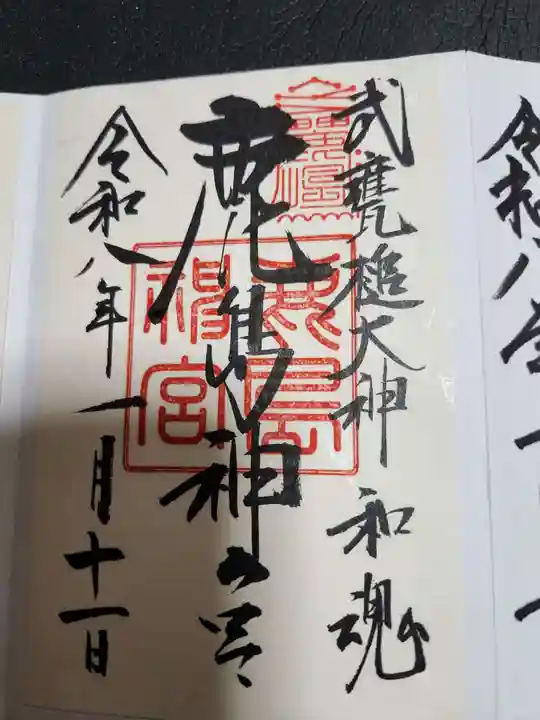 武甕槌大神 和魂
鹿島神宮
令和八年一月十一日
鹿島
神宮